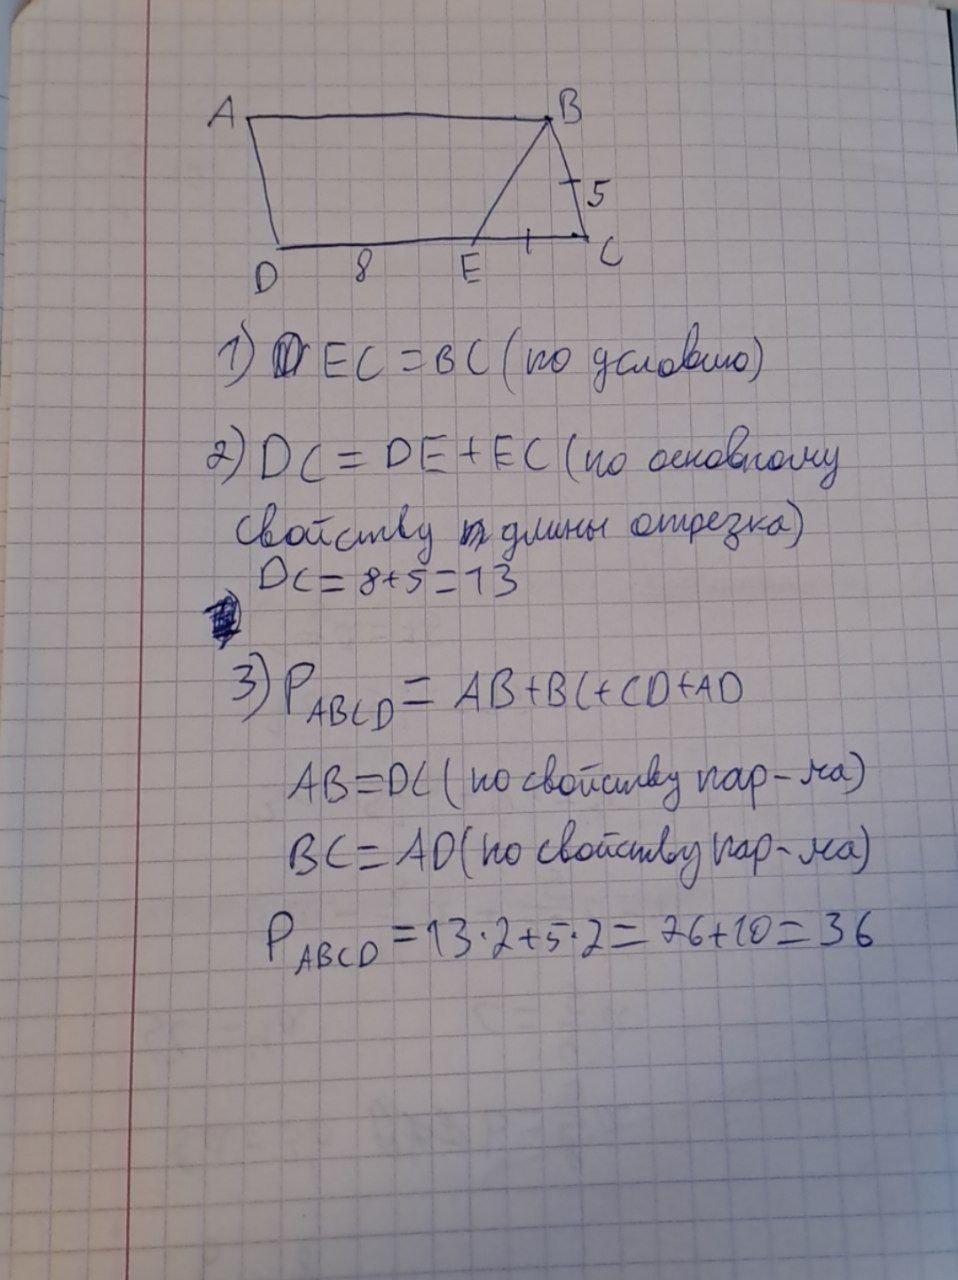 A B
5
D 8 E C
1) EC = BC (по условию)
2) DC = DE + EC (по основному
свойству длины отрезка)
DC = 8+5 = 13
3) P ABCD = AB+BC+CD+AD
AB = DC (по свойству пар-ма)
BC = AD (по свойству пар-ма)
P ABCD = 13·2+5·2 = 26+10 = 36